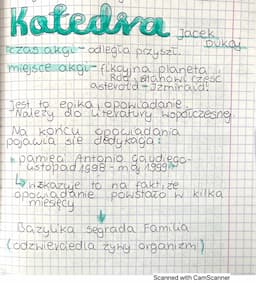 Katedra Jacek
Dukaj
czas akcji - odległa przyszł.
miejsce akcji - fikcyjna planeta
Rog, stanowi część
asteroid - Izmiraid.
Jest to epika, opowiadanie.
Należy do literatury współczesnej.
Na końcu opowiadania
pojawia się dedykacja:
"pamięci Antonio Gaudiego-
listopad 1998 - maj 1999"
↳ wskazuje to na fakt, że
opowiadanie powstało w kilka
miesięcy
↓
Bazylika Segrada Familia
(odzwierciedla żywy organizm)
Scanned with CamScanner